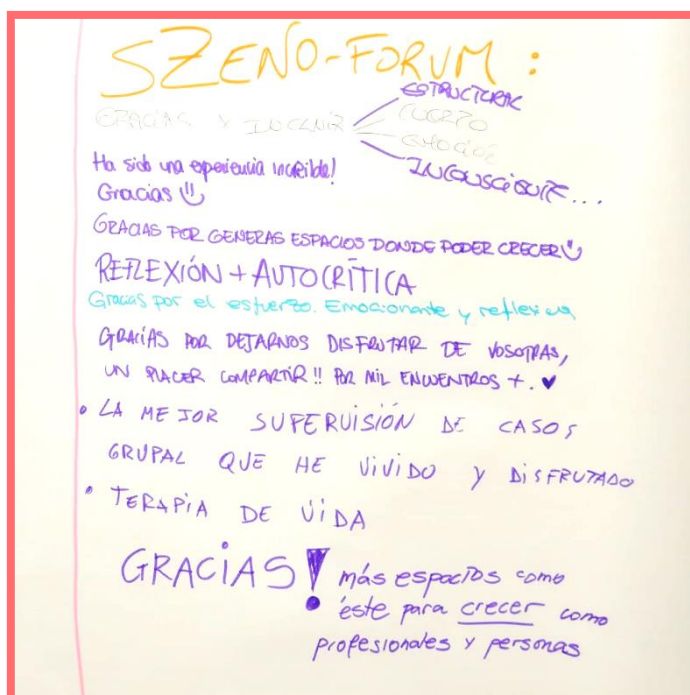 SZENO-FORUM:
GRACIAS Y INCLUIR
ESTRUCTURAL
CUERPO
EMOCIÓN
INCONSCIENTE...
Ha sido una experiencia increíble!
Gracias
GRACIAS POR GENERAS ESPACIOS DONDE PODER CRECER
REFLEXIÓN + AUTOCRÍTICA
Gracias por el esfuerzo. Emocionante y reflexiva
GRACIAS POR DEJARNOS DISFRUTAR DE VOSOTRAS,
UN PLACER COMPARTIR!! POR MIL ENCUENTROS +. ♥
• LA MEJOR SUPERVISIÓN DE CASOS
GRUPAL QUE HE VIVIDO Y DISFRUTADO
• TERAPIA DE VIDA
GRACIAS!
más espacios como
éste para crecer como
profesionales y personas